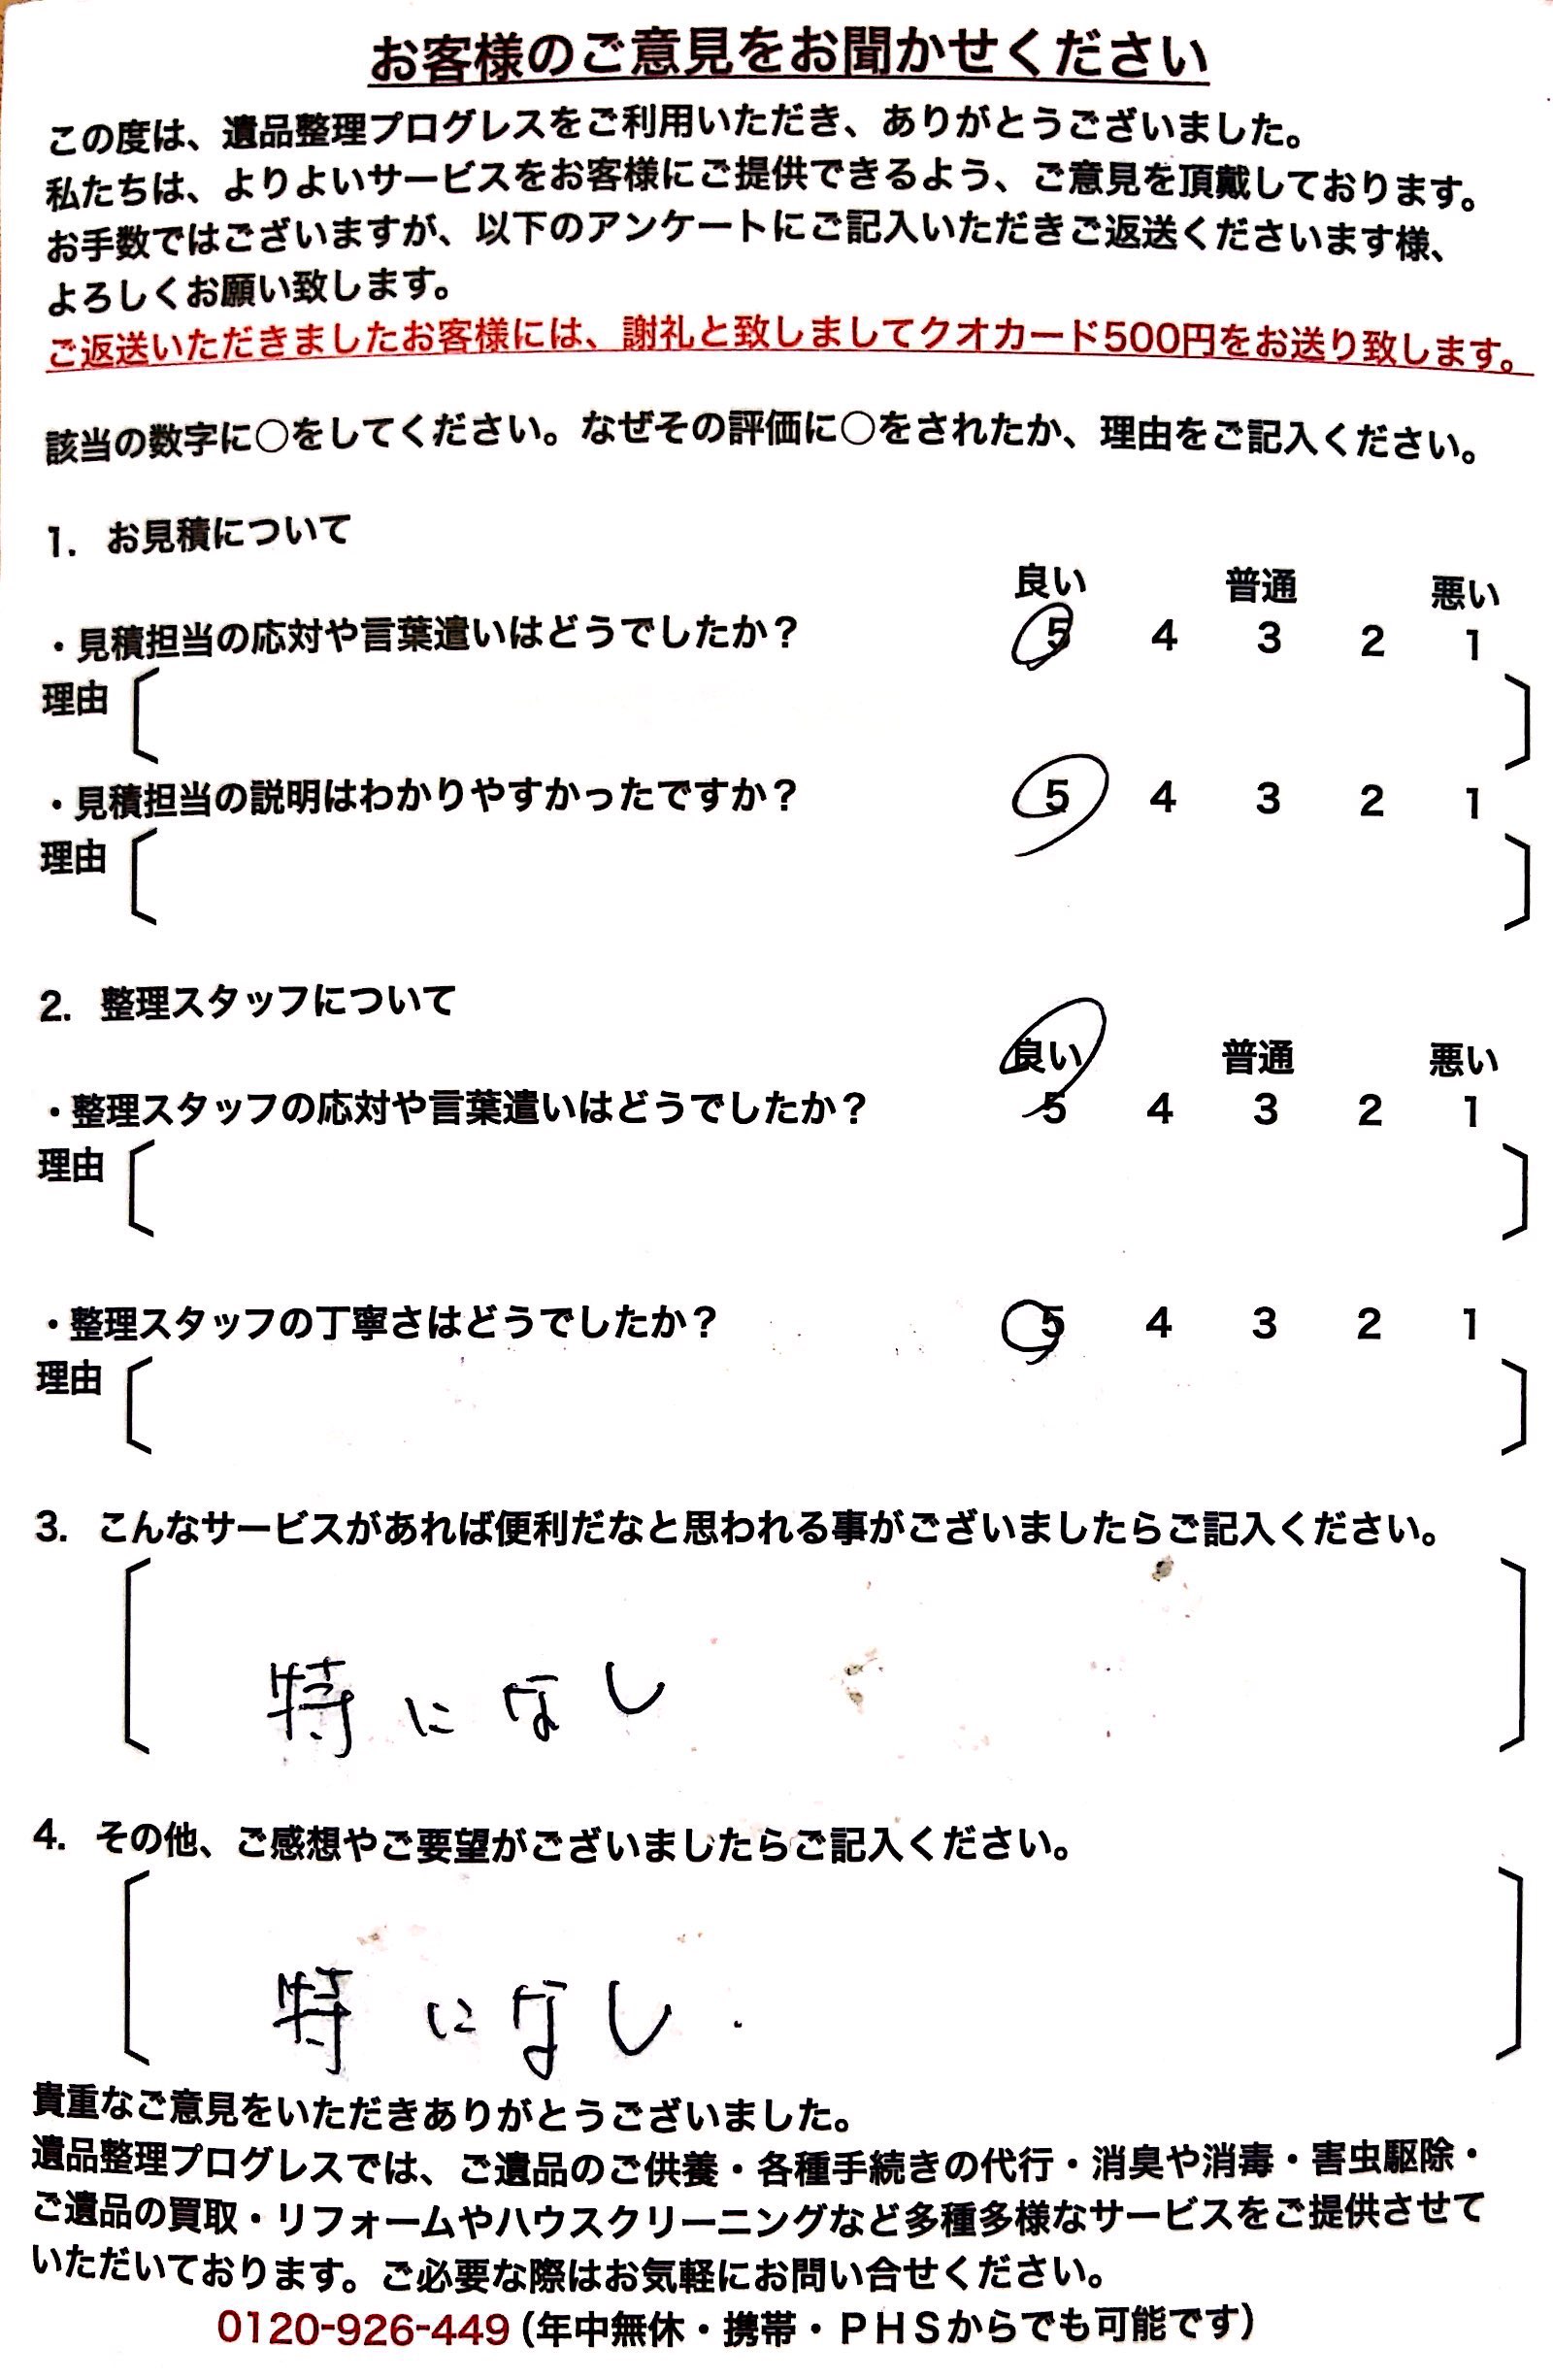 お客様のご意見をお聞かせください
この度は、遺品整理プログレスをご利用いただき、ありがとうございました。
私たちは、よりよいサービスをお客様にご提供できるよう、ご意見を頂戴しております。
お手数ではございますが、以下のアンケートにご記入いただきご返送くださいます様、
よろしくお願い致します。
ご返送いただきましたお客様には、謝礼と致しましてクオカード500円をお送り致します。
該当の数字に○をしてください。なぜその評価に○をされたか、理由をご記入ください。
1. お見積について
良い 普通 悪い
・見積担当の応対や言葉遣いはどうでしたか？ 5 4 3 2 1
理由〔 〕
・見積担当の説明はわかりやすかったですか？ 5 4 3 2 1
理由〔 〕
2. 整理スタッフについて
良い 普通 悪い
・整理スタッフの応対や言葉遣いはどうでしたか？ 5 4 3 2 1
理由〔 〕
・整理スタッフの丁寧さはどうでしたか？ 5 4 3 2 1
理由〔 〕
3. こんなサービスがあれば便利だなと思われる事がございましたらご記入ください。
〔 特になし 〕
4. その他、ご感想やご要望がございましたらご記入ください。
〔 特になし. 〕
貴重なご意見をいただきありがとうございました。
遺品整理プログレスでは、ご遺品のご供養・各種手続きの代行・消臭や消毒・害虫駆除・
ご遺品の買取・リフォームやハウスクリーニングなど多種多様なサービスをご提供させて
いただいております。ご必要な際はお気軽にお問い合せください。
0120-926-449（年中無休・携帯・ＰＨＳからでも可能です）